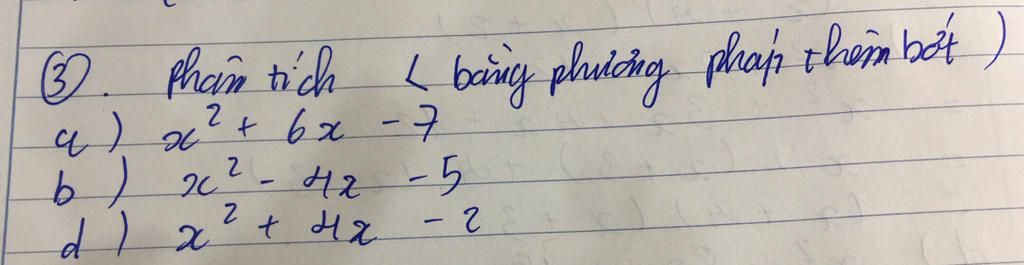 ③. Phân tích ( bằng phương pháp thêm bớt )
a) x² + 6x - 7
b) x² - 4x - 5
d) x² + 4x - 2